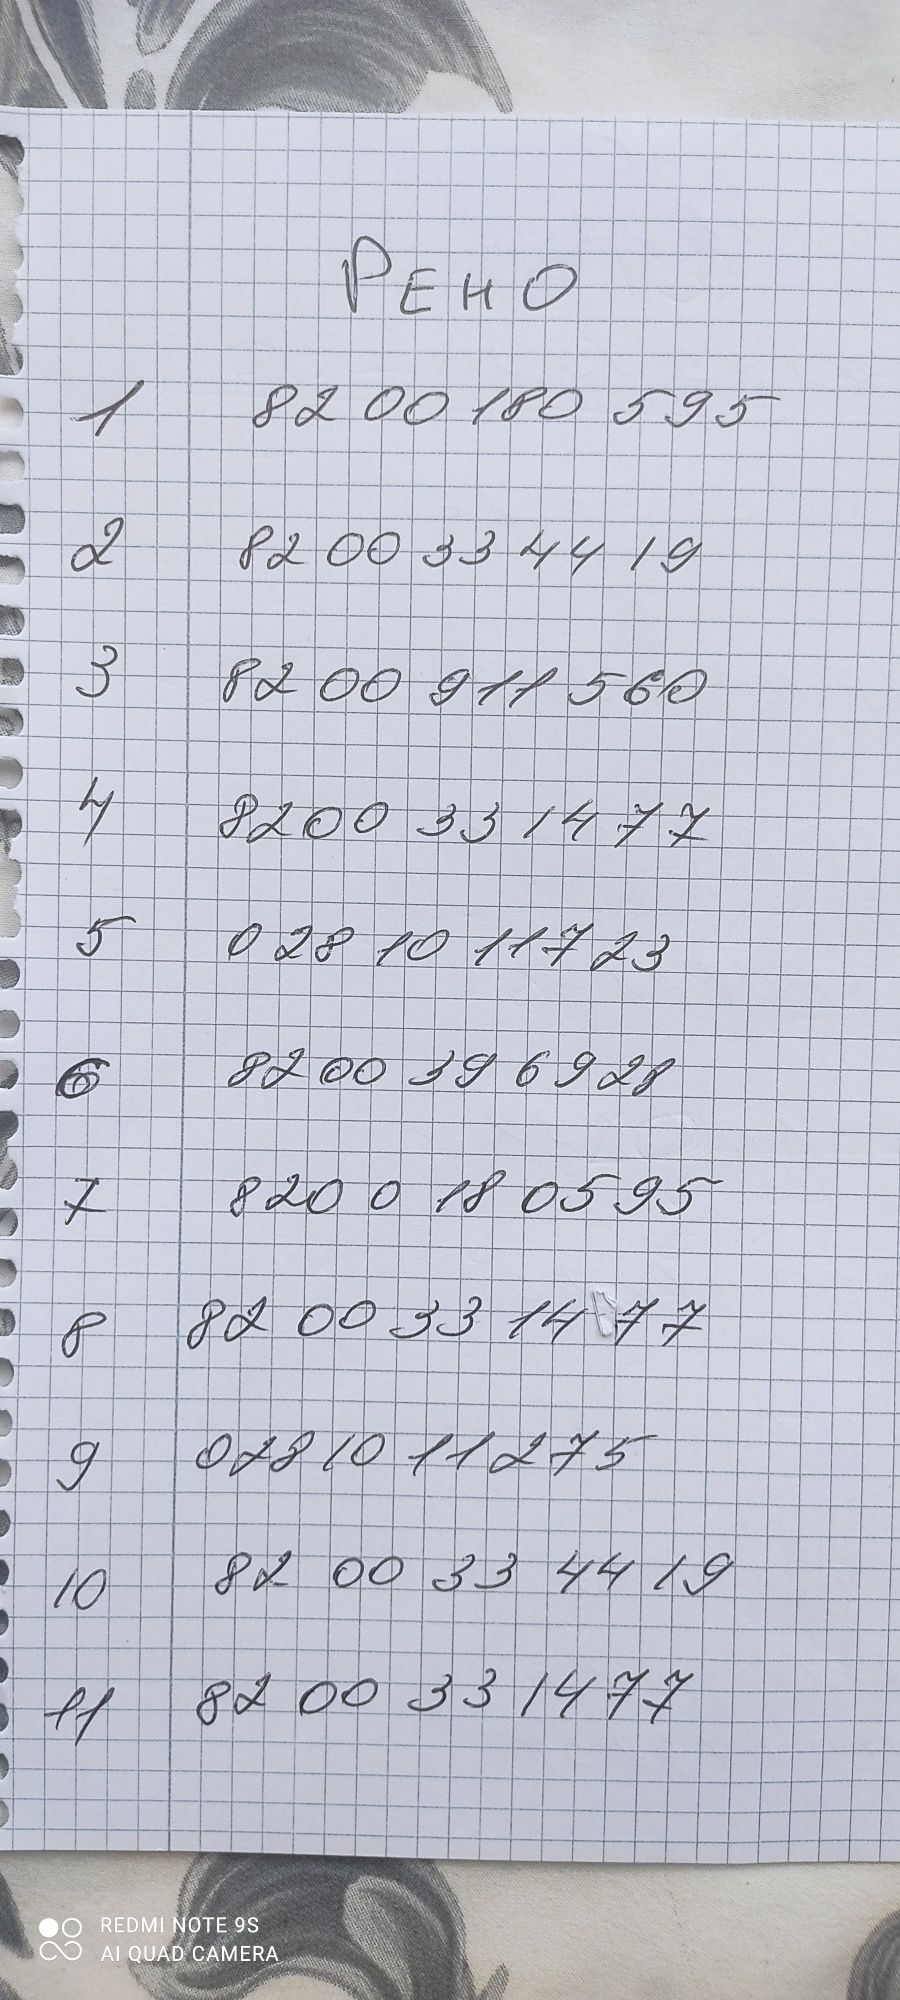 РЕНО
1 8200 180 595
2 82 00 33 44 19
3 82 00 911 560
4 8200 33 14 77
5 0 28 10 11723
6 82 00 39 6 928
7 820 0 18 0595
8 82 00 33 14 77
9 02810 11275
10 82 00 33 44 19
11 82 00 33 1477
REDMI NOTE 9S
AI QUAD CAMERA